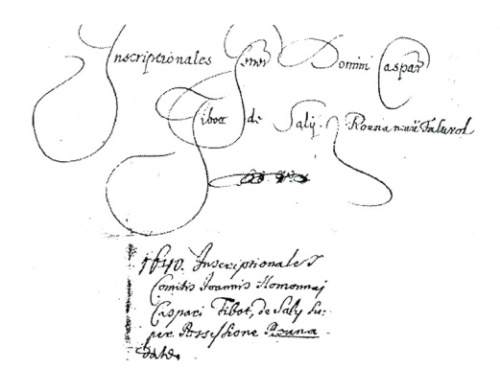 Inscriptionales Domini Caspar
Tibot de Saly. Rousia nevü
1640. Inscriptionales
Comitis Joannis Homonnaj
Caspari Tibot, de Saly su:
per Possessione Rouna
datæ.